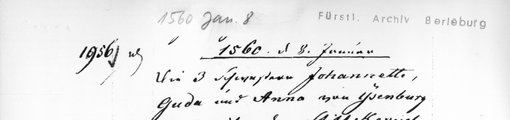 1560 Jan. 8
Fürstl. Archiv Berleburg
1956
1560. d 8. Januar
Die 3 Schwestern Johannette,
Guda und Anna von Ysenburg